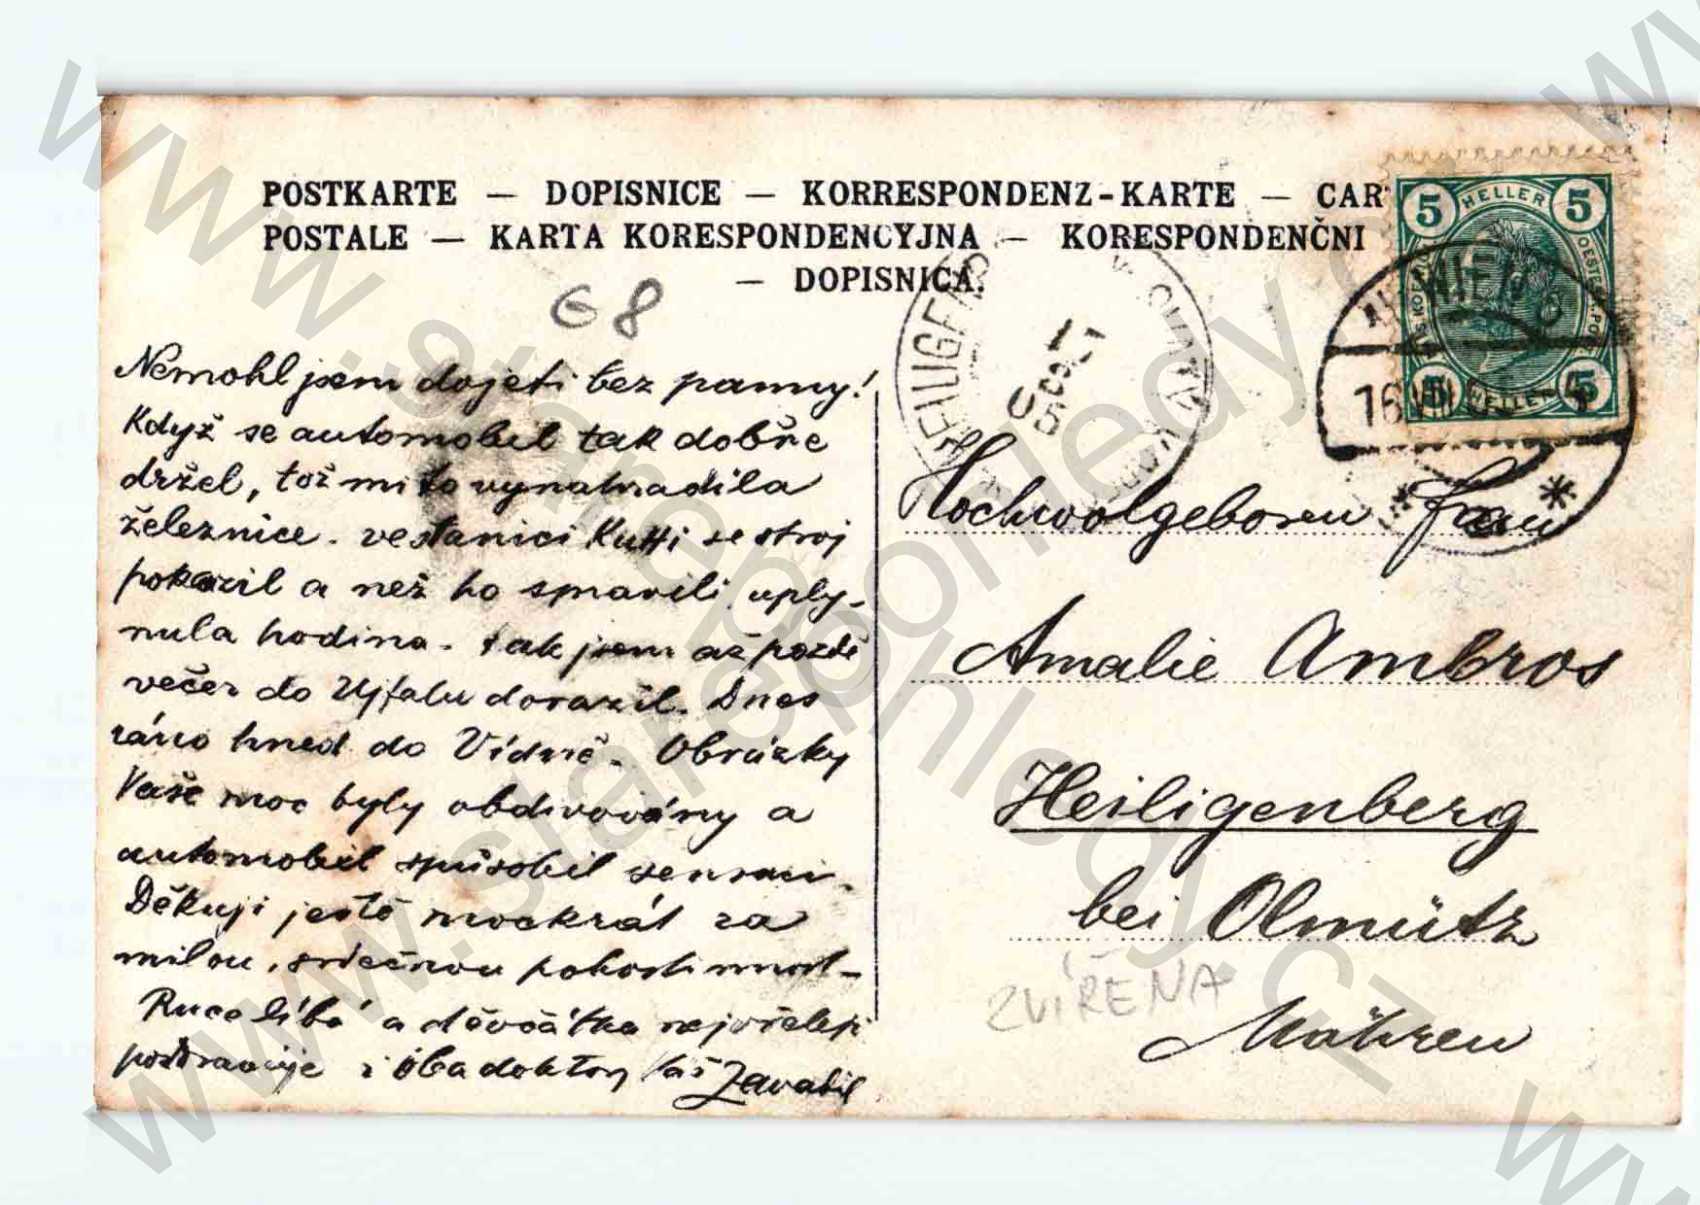 POSTKARTE — DOPISNICE — KORRESPONDENZ-KARTE — CAR
POSTALE — KARTA KORESPONDENCYJNA — KORESPONDENČNI
— DOPISNICA.
5 HELLER 5
5 HELLER 5
WIEN
16 VIII 05
HEILIGENB
17 8 05
68
Nemohl jsem dojeti bez panny!
Když se automobil tak dobře
držel, tož mi to vynahradila
železnice. ve stanici Kutti se stroj
pokazil a než ho spravili uply-
nula hodina. tak jsem až pozdě
večer do Ujfalu dorazil. Dnes
ráno hned do Vídně. Obrázky
Vaše moc byly obdivovány a
automobil spůsobil sensaci.
Děkuji ještě mockrát za
milou, srdečnou pohostinnost-
Ruce líbá a děvčátka nejvřeleji
pozdravuje i oba doktory Váš Zavadil
Hochwolgeboren Frau
Amalie Ambros
Heiligenberg
bei Olmütz
ZVÍŘENA
Mähren
www.starepohledy.cz
www.starepohledy.cz